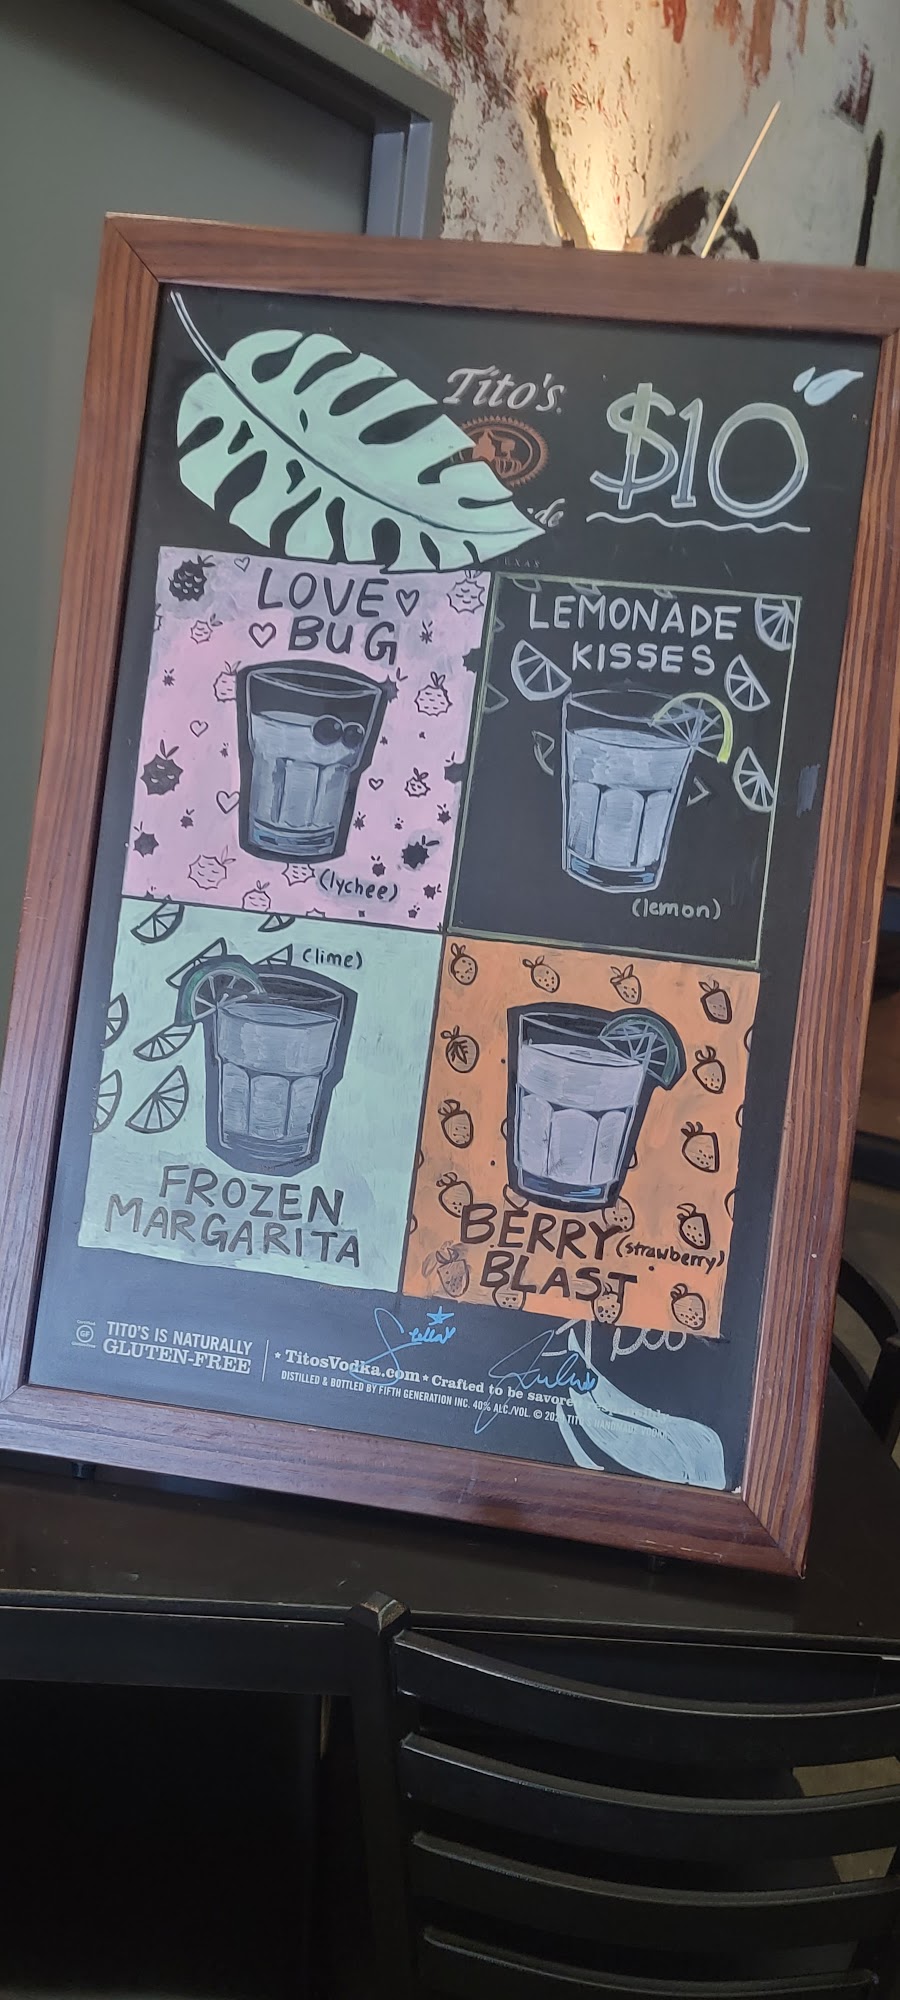 Tito's.
$10
.de
EXAS
LOVE
BUG
(lychee)
LEMONADE
KISSES
(lemon)
(lime)
FROZEN
MARGARITA
BERRY
(strawberry)
BLAST
GF
TITO'S IS NATURALLY
GLUTEN-FREE
TitosVodka.com ★ Crafted to be savored responsibly.
DISTILLED & BOTTLED BY FIFTH GENERATION INC. 40% ALC./VOL. © 202 TITO'S HANDMADE VODKA
Tito